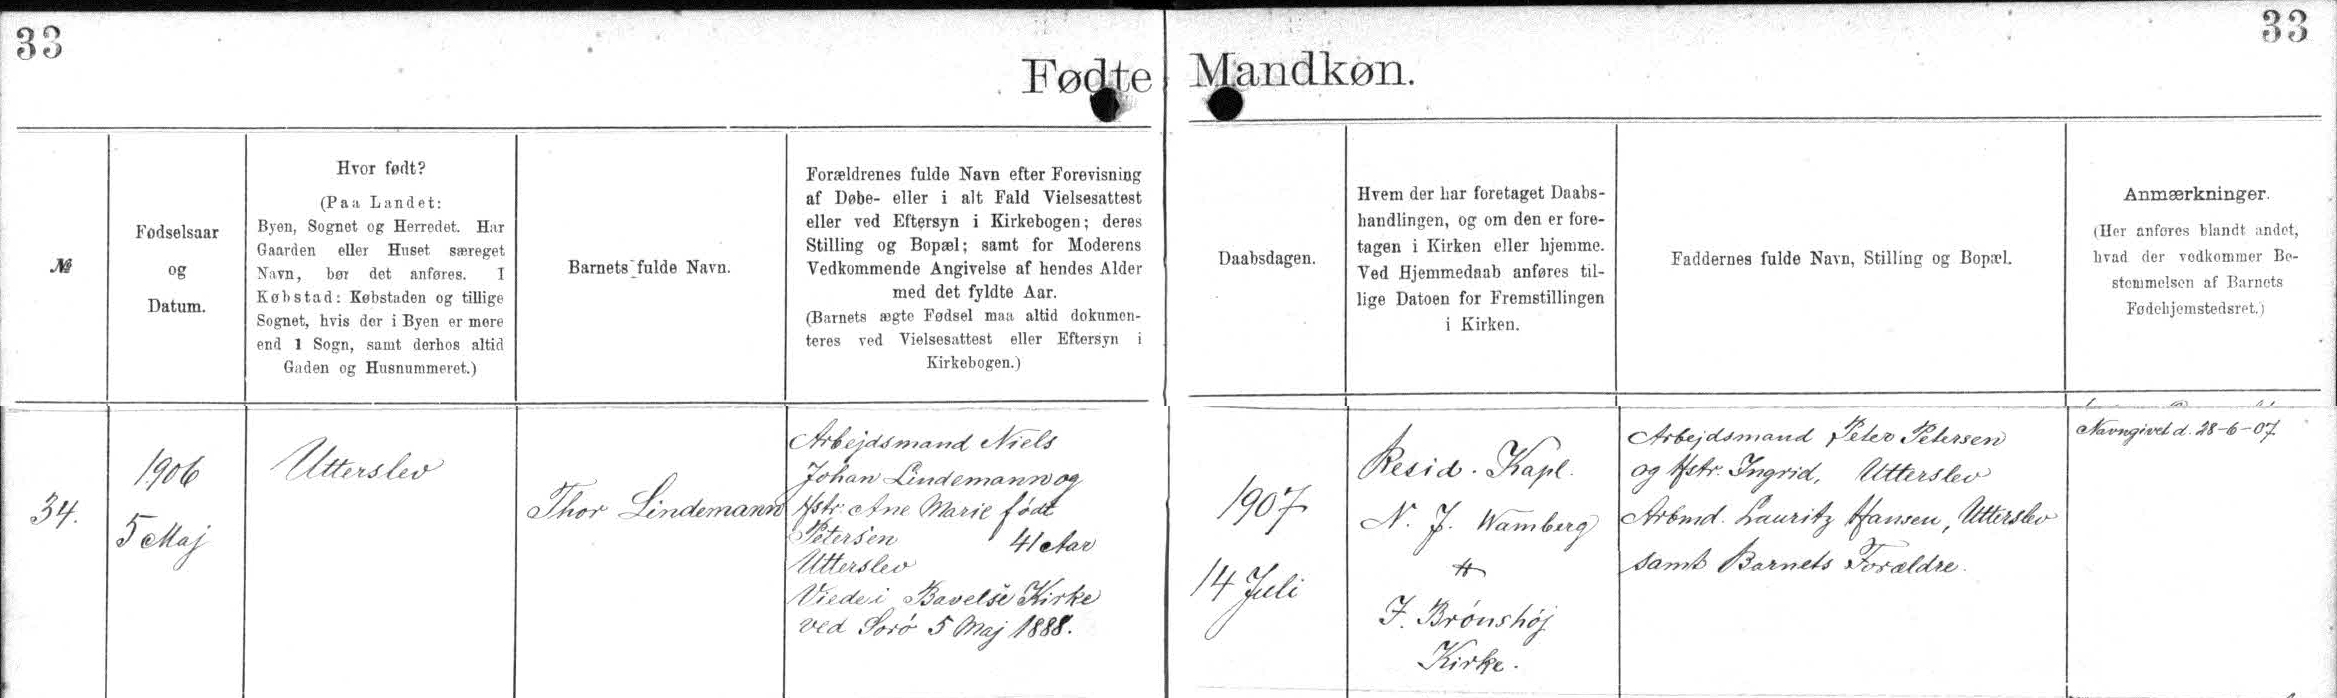 33
33
Fødte Mandkøn.
№
Fødselsaar
og
Datum.
Hvor født?
(Paa Landet:
Byen, Sognet og Herredet. Har
Gaarden eller Huset særeget
Navn, bør det anføres. I
Købstad: Købstaden og tillige
Sognet, hvis der i Byen er mere
end 1 Sogn, samt derhos altid
Gaden og Husnummeret.)
Barnets fulde Navn.
Forældrenes fulde Navn efter Forevisning
af Døbe- eller i alt Fald Vielsesattest
eller ved Eftersyn i Kirkebogen; deres
Stilling og Bopæl; samt for Moderens
Vedkommende Angivelse af hendes Alder
med det fyldte Aar.
(Barnets ægte Fødsel maa altid dokumen-
teres ved Vielsesattest eller Eftersyn i
Kirkebogen.)
Daabsdagen.
Hvem der har foretaget Daabs-
handlingen, og om den er fore-
tagen i Kirken eller hjemme.
Ved Hjemmedaab anføres til-
lige Datoen for Fremstillingen
i Kirken.
Faddernes fulde Navn, Stilling og Bopæl.
Anmærkninger.
(Her anføres blandt andet,
hvad der vedkommer Be-
stemmelsen af Barnets
Fødehjemstedsret.)
34.
1906
5 Maj
Utterslev
Thor Lindemann
Arbejdsmand Niels
Johan Lindemann og
Hstr. Ane Marie født
Petersen 41 Aar
Utterslev
Viede i Bavelse Kirke
ved Sorø 5 Maj 1888.
1907
14 Juli
Resid. Kapl.
N. J. Wamberg
H
I. Brønshøj
Kirke.
Arbejdsmand Peter Petersen
og Hstr. Ingrid, Utterslev
Arbmd. Lauritz Hansen, Utterslev
samt Barnets Forældre.
Navngivet d. 28-6-07.